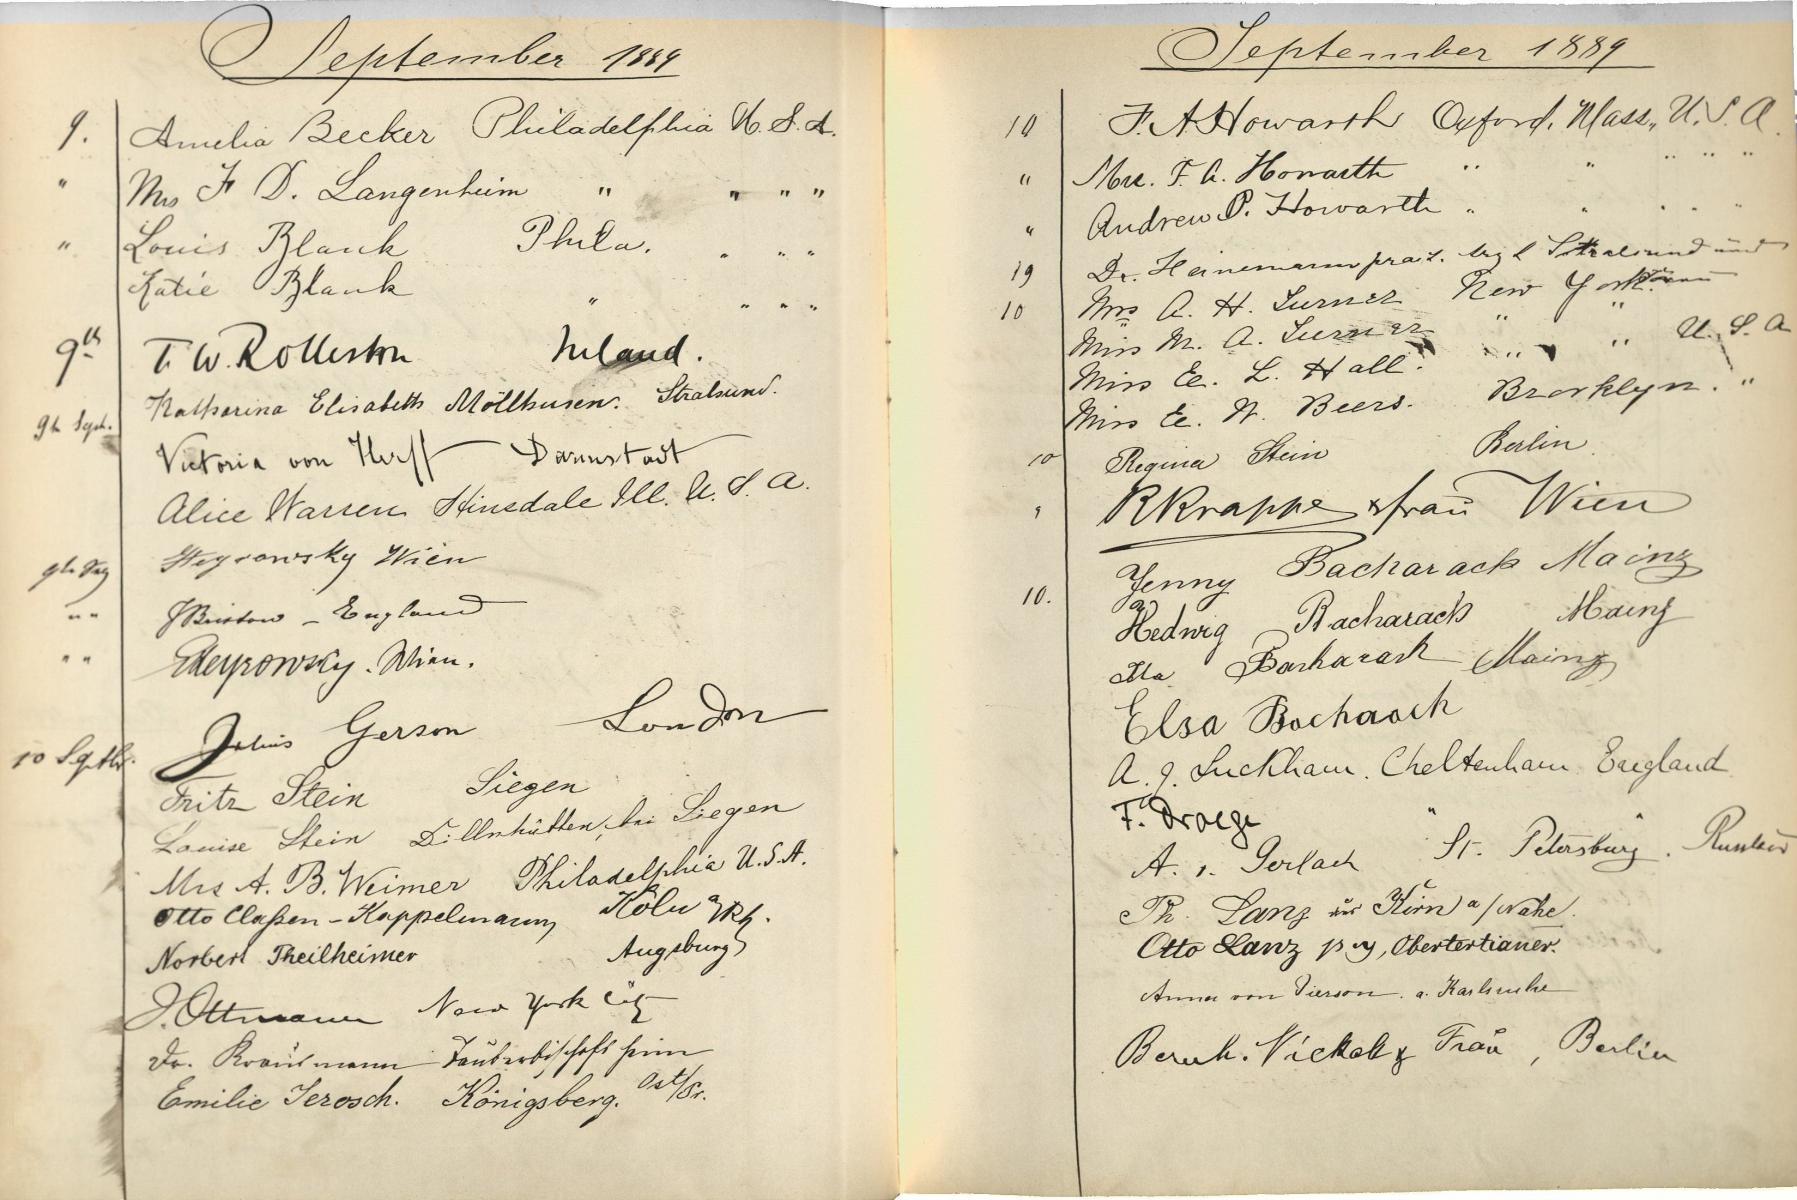 September 1889
9. Amelia Becker Philadelphia U.S.A.
" Mrs F D. Langenheim " " " "
" Louis Blank Phila. " " "
Katie Blank " " " "
9th T. W. Rolleston Ireland.
Katharina Elisabeth Möllhusen. Stralsund.
9th Sept. Victoria von Herff Darmstadt
Alice Warren Hinsdale Ill. U.S.A.
Steyrowsky Wien
" " JBristow - England
" " Steyrowsky. Wien.
Julius Gerson London
10 Septbr.
Fritz Stein Siegen
Louise Stein Dillnhütten, bei Siegen
Mrs A. B. Weimer Philadelphia U.S.A.
Otto Claßen-Kappelmann Köln a/Rh.
Norbert Theilheimer Augsburg
J. Ottmann New York City
Dr. Tauberbischofsheim
Emilie Jerosch. Königsberg. Ost/Pr.
September 1889
10 F. A Howarth Oxford, Mass., U.S.A.
" Mrs. F. A. Howarth " " " " "
" Andrew P. Howarth " " " " "
19 Dr. Heinemann Stralsund und
10 Mrs A. H. Turner New York
Miss M. A. Turner " " U.S.A
Miss E. L. Hall. " "
Miss E. W. Beers. Brooklyn. "
10 Regina Stein Berlin
" RKrappe & frau Wien
10. Jenny Bacharach Mainz
Hedwig Bacharach Mainz
Bacharach Mainz
Elsa Bacharach
A. J. Luckham. Cheltenham England
F. Droege " "
A. v. Gerlach St. Petersburg. Russland
Th. Lanz aus Kirn a/Nahe.
Otto Lanz Obertertianer.
Anna von Pierson a. Karlsruhe
Bernh. Nickel & Frau, Berlin